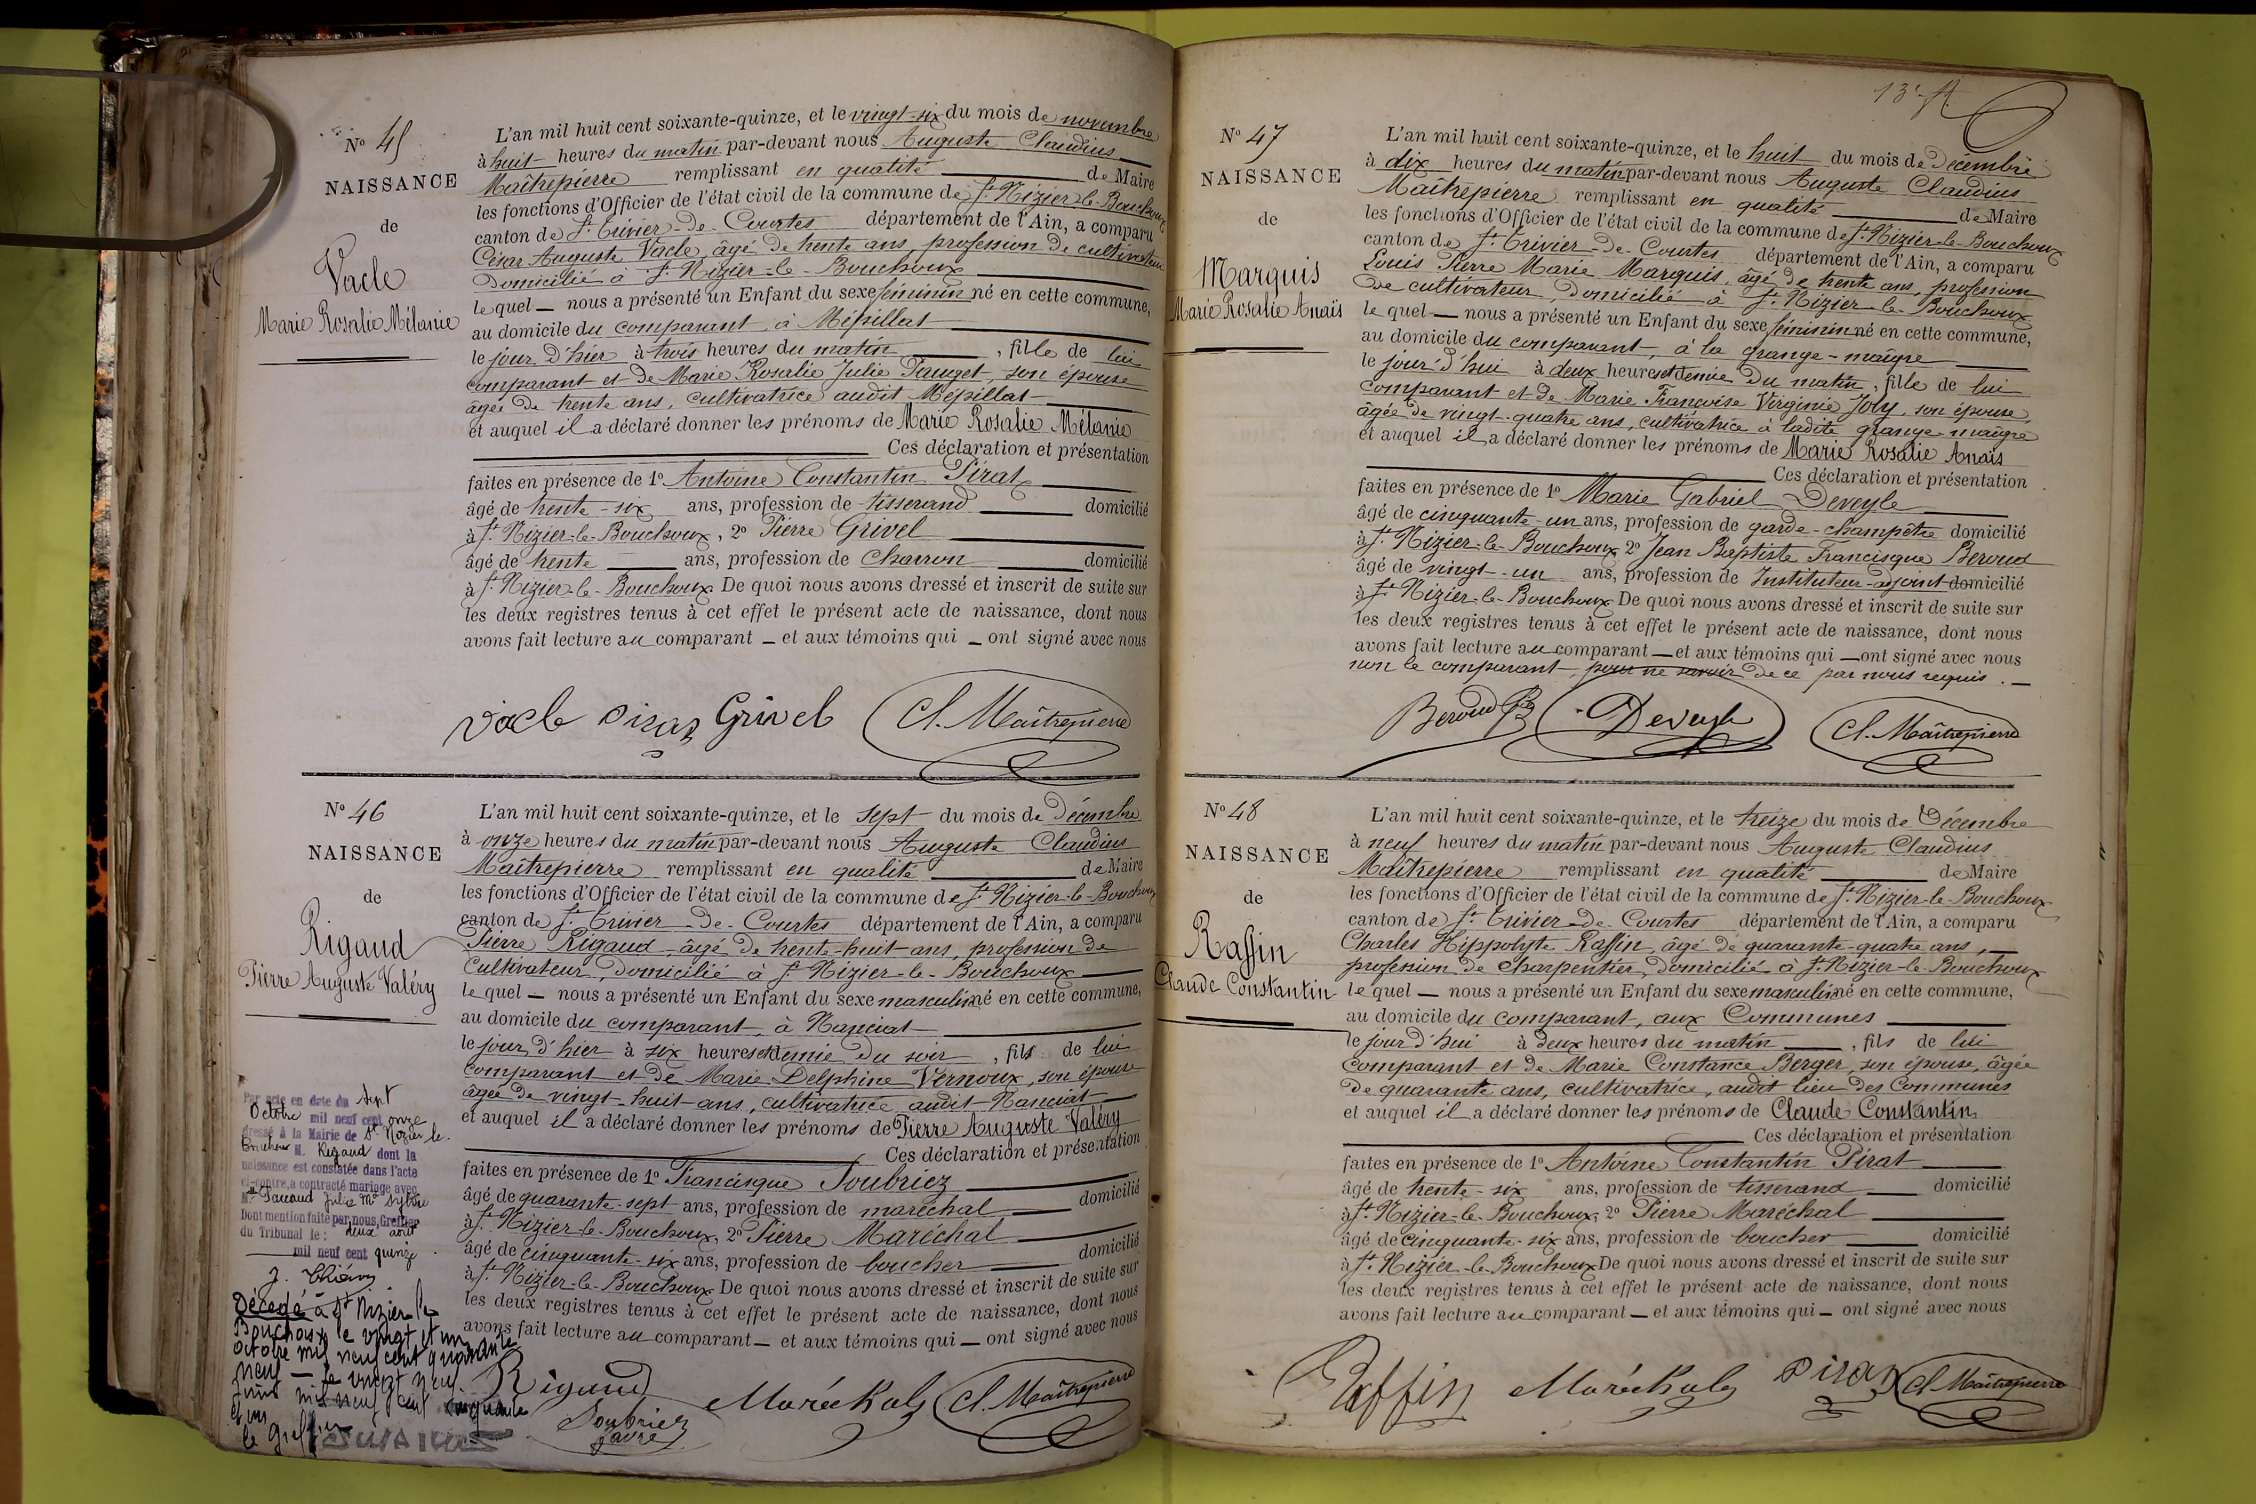 N° 45
NAISSANCE
de
Vacle
Marie Rosalie Mélanie
L'an mil huit cent soixante-quinze, et le vingt-six du mois de novembre
à huit heures du matin par-devant nous Auguste Claudius
Maîtrepierre remplissant en qualité de Maire
les fonctions d'Officier de l'état civil de la commune de St Nizier-le-Bouchoux
canton de St Trivier-de-Courtes département de l'Ain, a comparu
César Auguste Vacle, âgé de trente ans, profession de cultivateur
Domicilié à St Nizier-le-Bouchoux
le quel — nous a présenté un Enfant du sexe féminin né en cette commune,
au domicile du comparant, à Mépillat
le jour d'hier à trois heures du matin, fille de lui
comparant et de Marie Rosalie Julie Pauget, son épouse
âgée de trente ans, cultivatrice audit Mépillat
et auquel il a déclaré donner les prénoms de Marie Rosalie Mélanie
Ces déclaration et présentation
faites en présence de 1° Antoine Constantin Pirat
âgé de trente-six ans, profession de tisserand domicilié
à St Nizier-le-Bouchoux, 2° Pierre Grivel
âgé de trente ans, profession de charron domicilié
à St Nizier-le-Bouchoux De quoi nous avons dressé et inscrit de suite sur
les deux registres tenus à cet effet le présent acte de naissance, dont nous
avons fait lecture au comparant — et aux témoins qui — ont signé avec nous
Vacle Pirat Grivel Cl. Maîtrepierre
N° 46
NAISSANCE
de
Rigaud
Pierre Auguste Valéry
L'an mil huit cent soixante-quinze, et le sept du mois de Décembre
à onze heures du matin par-devant nous Auguste Claudius
Maîtrepierre remplissant en qualité de Maire
les fonctions d'Officier de l'état civil de la commune de St Nizier-le-Bouchoux
canton de St Trivier-de-Courtes département de l'Ain, a comparu
Pierre Rigaud âgé de trente-huit ans, profession de
Cultivateur, Domicilié à St Nizier-le-Bouchoux
le quel — nous a présenté un Enfant du sexe masculin né en cette commune,
au domicile du comparant, à Nanciat
le jour d'hier à six heures et demie du soir, fils de lui
comparant et de Marie Delphine Vernoux, son épouse
âgée de vingt-huit ans, cultivatrice audit Nanciat
et auquel il a déclaré donner les prénoms de Pierre Auguste Valéry
Ces déclaration et présentation
faites en présence de 1° Francisque Soubriez
âgé de quarante-sept ans, profession de maréchal domicilié
à St Nizier-le-Bouchoux, 2° Pierre Maréchal
âgé de cinquante-six ans, profession de boucher domicilié
à St Nizier-le-Bouchoux De quoi nous avons dressé et inscrit de suite sur
les deux registres tenus à cet effet le présent acte de naissance, dont nous
avons fait lecture au comparant — et aux témoins qui — ont signé avec nous
Rigaud Maréchal Cl. Maîtrepierre
Soubriez
Par acte en date du Sept
Octobre mil neuf cent onze
dressé à la Mairie de St Nizier le
Bouchoux M. Rigaud dont la
naissance est constatée dans l'acte
ci-contre, a contracté mariage avec
Julie Me
Dont mention faite par nous, Greffier
du Tribunal le: deux août
mil neuf cent quinze
Décédé à St Nizier le
Bouchoux le vingt et un
octobre mil neuf cent quarante
neuf — le vingt neuf
juin mil neuf cent cinquante
et un
le Greffier
13e f.
N° 47
NAISSANCE
de
Marquis
Marie Rosalie Anaïs
L'an mil huit cent soixante-quinze, et le huit du mois de Décembre
à dix heures du matin par-devant nous Auguste Claudius
Maîtrepierre remplissant en qualité de Maire
les fonctions d'Officier de l'état civil de la commune de St Nizier-le-Bouchoux
canton de St Trivier-de-Courtes département de l'Ain, a comparu
Louis Pierre Marie Marquis, âgé de trente ans, profession
de cultivateur, Domicilié à St Nizier-le-Bouchoux
le quel — nous a présenté un Enfant du sexe féminin né en cette commune,
au domicile du comparant, à la grange-maigre
le jour d'hui à deux heures et demie du matin, fille de lui
comparant et de Marie Françoise Virginie Joly, son épouse,
âgée de vingt-quatre ans, cultivatrice à ladite grange maigre
et auquel il a déclaré donner les prénoms de Marie Rosalie Anaïs
Ces déclaration et présentation
faites en présence de 1° Marie Gabriel Deveyle
âgé de cinquante-un ans, profession de garde-champêtre domicilié
à St Nizier-le-Bouchoux 2° Jean Baptiste Francisque Beroud
âgé de vingt-un ans, profession de Instituteur-adjoint domicilié
à St Nizier-le-Bouchoux De quoi nous avons dressé et inscrit de suite sur
les deux registres tenus à cet effet le présent acte de naissance, dont nous
avons fait lecture au comparant — et aux témoins qui — ont signé avec nous
non le comparant, pour ne savoir de ce par nous requis. —
Beroud Deveyle Cl. Maîtrepierre
N° 48
NAISSANCE
de
Raffin
Claude Constantin
L'an mil huit cent soixante-quinze, et le treize du mois de Décembre
à neuf heures du matin par-devant nous Auguste Claudius
Maîtrepierre remplissant en qualité de Maire
les fonctions d'Officier de l'état civil de la commune de St Nizier-le-Bouchoux
canton de St Trivier-de-Courtes département de l'Ain, a comparu
Charles Hippolyte Raffin, âgé de quarante-quatre ans,
profession de charpentier, domicilié à St Nizier-le-Bouchoux
le quel — nous a présenté un Enfant du sexe masculin né en cette commune,
au domicile du comparant, aux Communes
le jour d'hui à deux heures du matin, fils de lui
comparant et de Marie Constance Berger, son épouse, âgée
de quarante ans, cultivatrice, audit lieu des Communes
et auquel il a déclaré donner les prénoms de Claude Constantin
Ces déclaration et présentation
faites en présence de 1° Antoine Constantin Pirat
âgé de trente-six ans, profession de tisserand domicilié
à St Nizier-le-Bouchoux, 2° Pierre Maréchal
âgé de cinquante-six ans, profession de boucher domicilié
à St Nizier-le-Bouchoux De quoi nous avons dressé et inscrit de suite sur
les deux registres tenus à cet effet le présent acte de naissance, dont nous
avons fait lecture au comparant — et aux témoins qui — ont signé avec nous
Raffin Maréchal Pirat Cl. Maîtrepierre